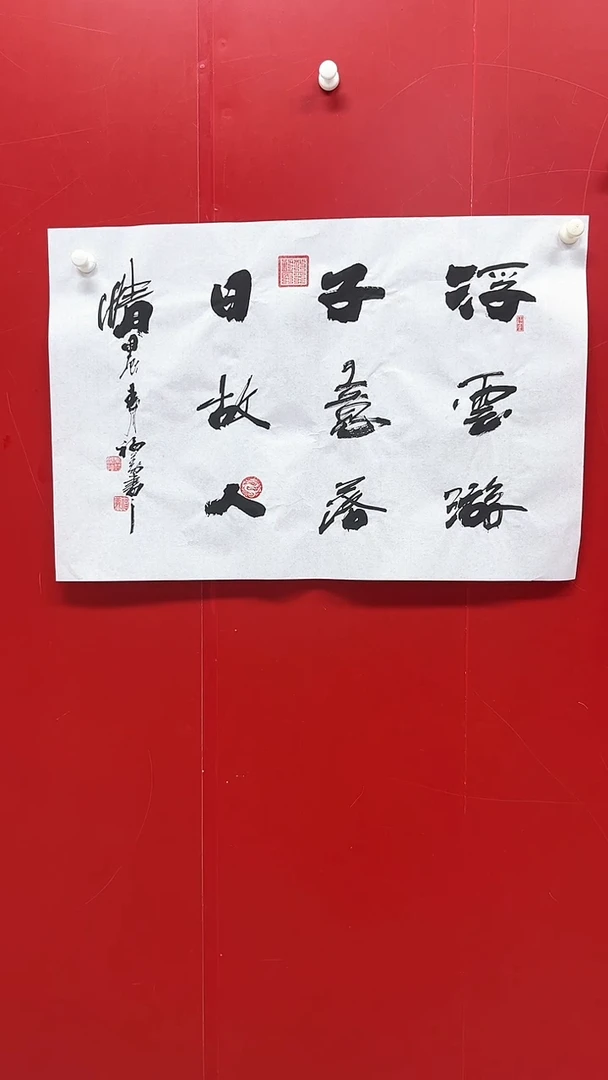 浮雲游
子意落
日故人
情